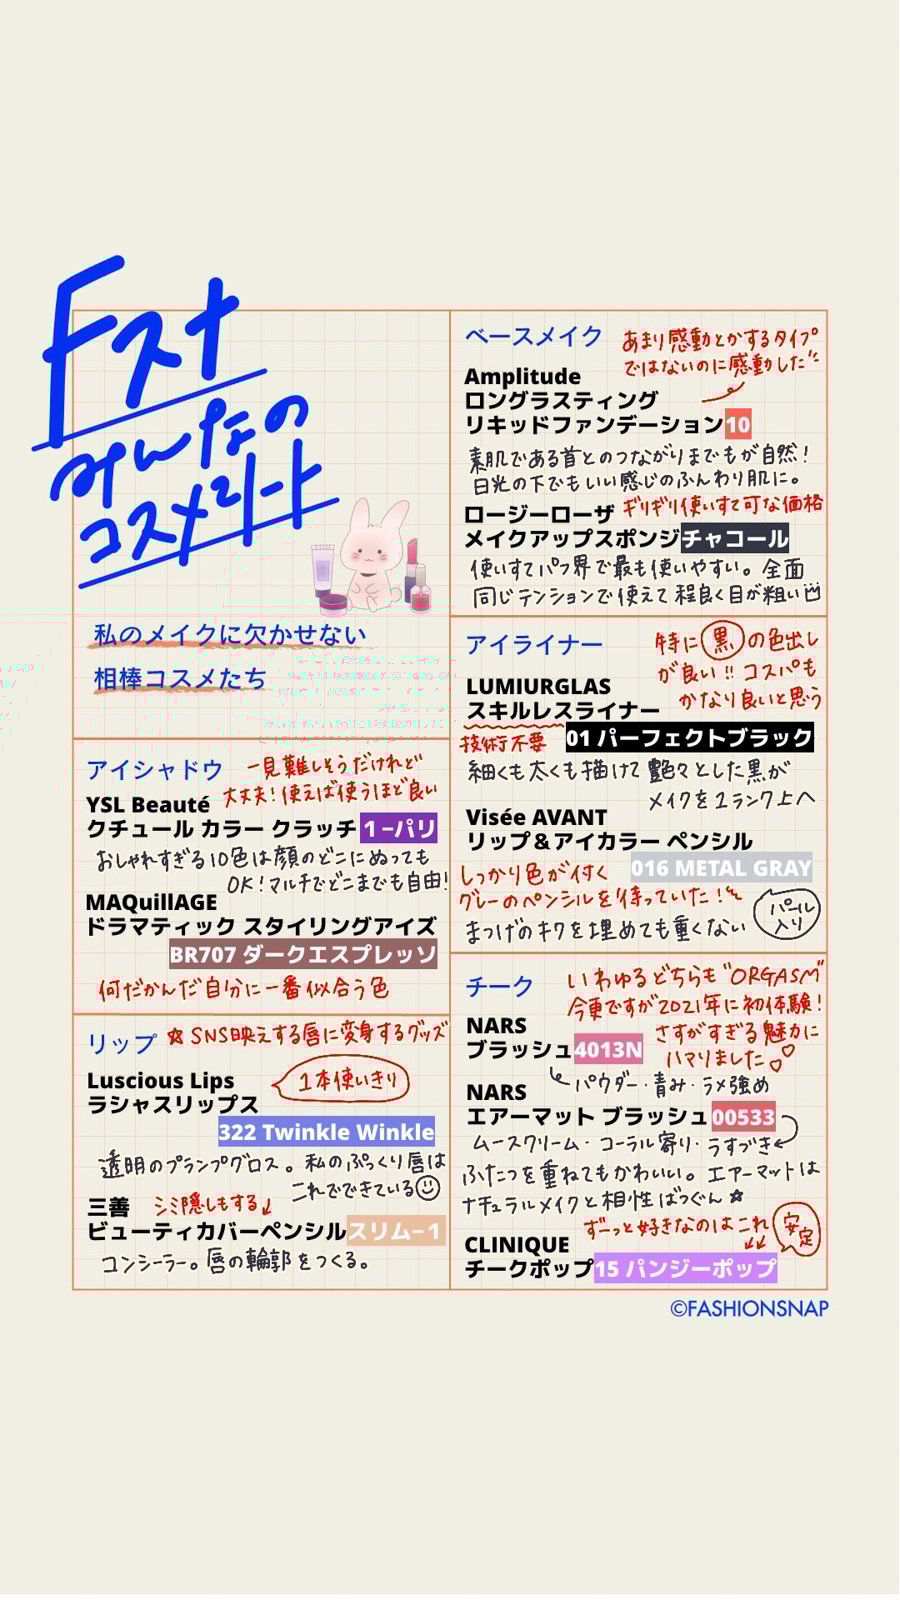 Fスナ
みんなの
コスメシート
私のメイクに欠かせない
相棒コスメたち
アイシャドウ
一見難しそうだけれど
大丈夫!使えば使うほど良い
YSL Beauté
クチュール カラー クラッチ 1-パリ
おしゃれすぎる10色は顔のどこにぬっても
OK!マルチでどこまでも自由!
MAQuillAGE
ドラマティック スタイリングアイズ
BR707 ダークエスプレッソ
何だかんだ自分に一番似合う色
リップ
☆SNS映えする唇に変身するグッズ
Luscious Lips
ラシャスリップス
1本使いきり
322 Twinkle Winkle
透明のプランプグロス。私のぷっくり唇は
これでできている
三善
シミ隠しもする
ビューティカバーペンシルスリム-1
コンシーラー。唇の輪郭をつくる。
ベースメイク
あまり感動とかするタイプ
ではないのに感動した
Amplitude
ロングラスティング
リキッドファンデーション10
素肌である首とのつながりまでもが自然!
日光の下でもいい感じのふんわり肌に。
ロージーローザ
ギリギリ使いすて可な価格
メイクアップスポンジチャコール
使いすてパフ界で最も使いやすい。全面
同じテンションで使えて程良く目が粗い
アイライナー
特に黒の色出し
が良い!!コスパも
かなり良いと思う
LUMIURGLAS
スキルレスライナー
技術不要
01 パーフェクトブラック
細くも太くも描けて艶々とした黒が
メイクを1ランク上へ
Visée AVANT
リップ&アイカラー ペンシル
016 METAL GRAY
しっかり色が付く
グレーのペンシルを待っていた!
パール
入り
まつげのキワを埋めても重くない
チーク
いわゆるどちらも"ORGASM"
今更ですが2021年に初体験!
さすがすぎる魅力に
ハマりました♡♡
NARS
ブラッシュ4013N
パウダー・青み・ラメ強め
NARS
エアーマット ブラッシュ 00533
ムースクリーム・コーラル寄り・うすづき
ふたつを重ねてもかわいい。エアーマットは
ナチュラルメイクと相性ばつぐん☆
ずーっと好きなのはこれ
安定
CLINIQUE
チークポップ15 パンジーポップ
©FASHIONSNAP